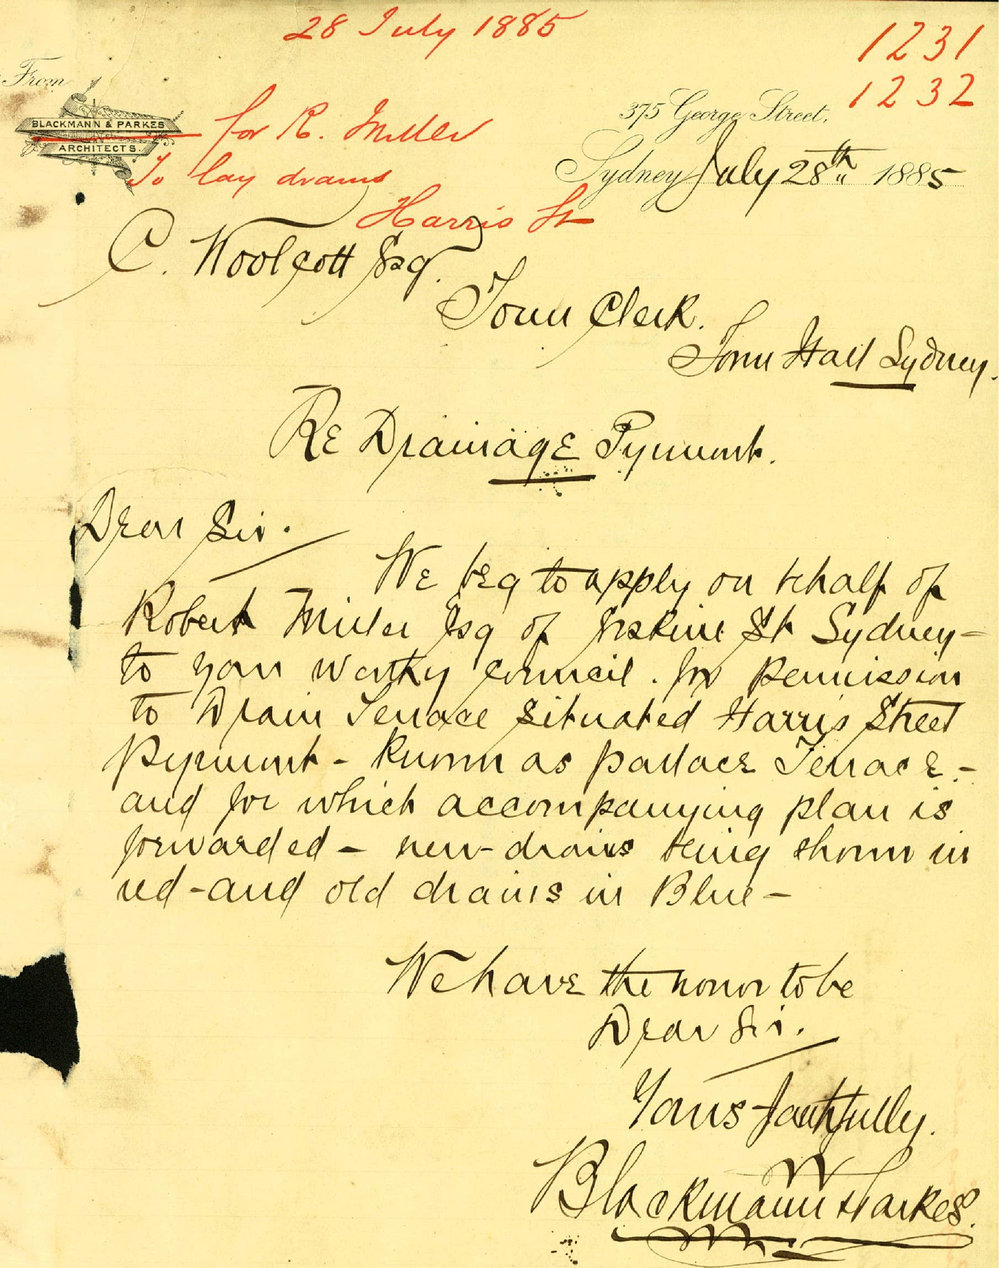 28 July 1885
1231
1232
From
BLACKMANN & PARKES
ARCHITECTS.
for R. Miller
To lay drains
Harris St
375 George Street,
Sydney July 28th 1885
C. Woolcott Esq.
Town Clerk.
Town Hall Sydney.
Re Drainage Pyrmont.
Dear Sir.
We beg to apply on behalf of
Robert Miller Esq of Erskine St Sydney -
to your worthy Council. for permission
to Drain Terrace situated Harris Street
Pyrmont - known as Pallace Terrace -
and for which accompanying plan is
forwarded - new drains being shown in
red - and old drains in Blue -
We have the honor to be
Dear Sir.
Yours faithfully.
Blackmann & Parkes.